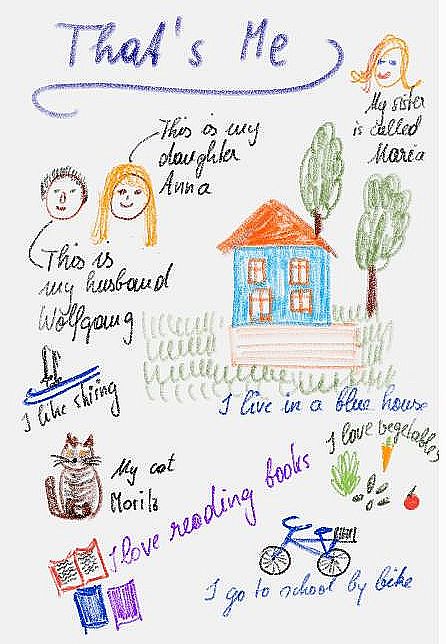 That's Me
My sister
is called
Maria
This is my
daughter
Anna
This is
my husband
Wolfgang
I like skiing
I live in a blue house
I love vegetables
My cat
Moritz
I love reading books
I go to school by bike